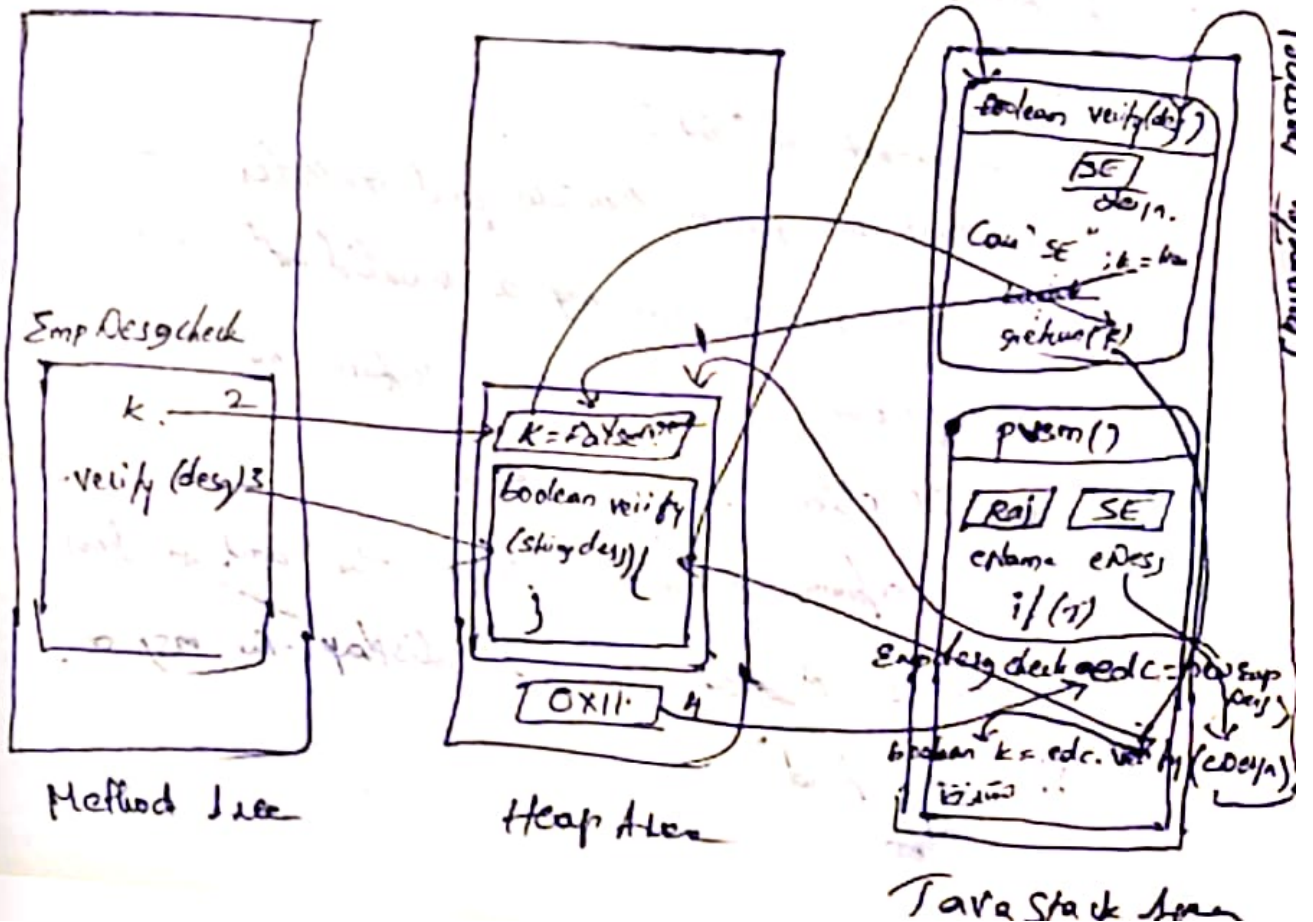 EmpDesgcheck
k 2
verify (desg) 3
Method Area
1
boolean verify
(String desg) {
}
0X11 4
Heap Area
boolean verify(des)
SE
desgn.
Case "SE" ; k =
break
return(k)
pvsm()
Raj SE
eName eDesg
if (T)
EmpDesg check edc = new Emp
Desg)
boolean k = edc. verify (eDesgn)
Java Stack Area